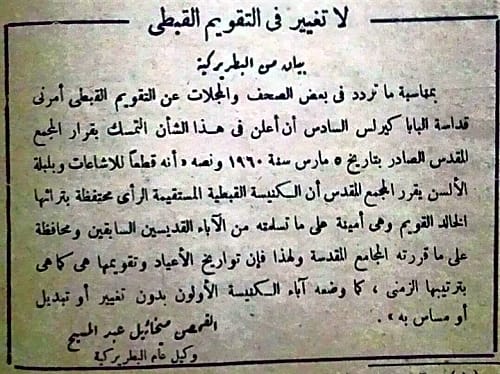 لا تغيير فى التقويم القبطى
بيان من البطريركية
بمناسبة ما تردد فى بعض الصحف والمجلات عن التقويم القبطى أمرنى
قداسة البابا كيرلس السادس أن أعلن فى هذا الشأن التمسك بقرار المجمع
المقدس الصادر بتاريخ ٥ مارس سنة ١٩٦٠ ونصه « أنه قطعاً للاشاعات وبلبلة
الألسن يقرر المجمع المقدس أن الكنيسة القبطية المستقيمة الرأى محتفظة بتراثها
الخالد القويم وهى أمينة على ما تسلمته من الآباء القديسين السابقين ومحافظة
على ما قررته المجامع المقدسة ولهذا فإن تواريخ الأعياد وتقويمها هى كما هى
بترتيبها الزمنى ، كما وضعه آباء الكنيسة الأولون بدون تغيير أو تبديل
أو مساس به » .
القمص ميخائيل عبد المسيح
وكيل عام البطريركية